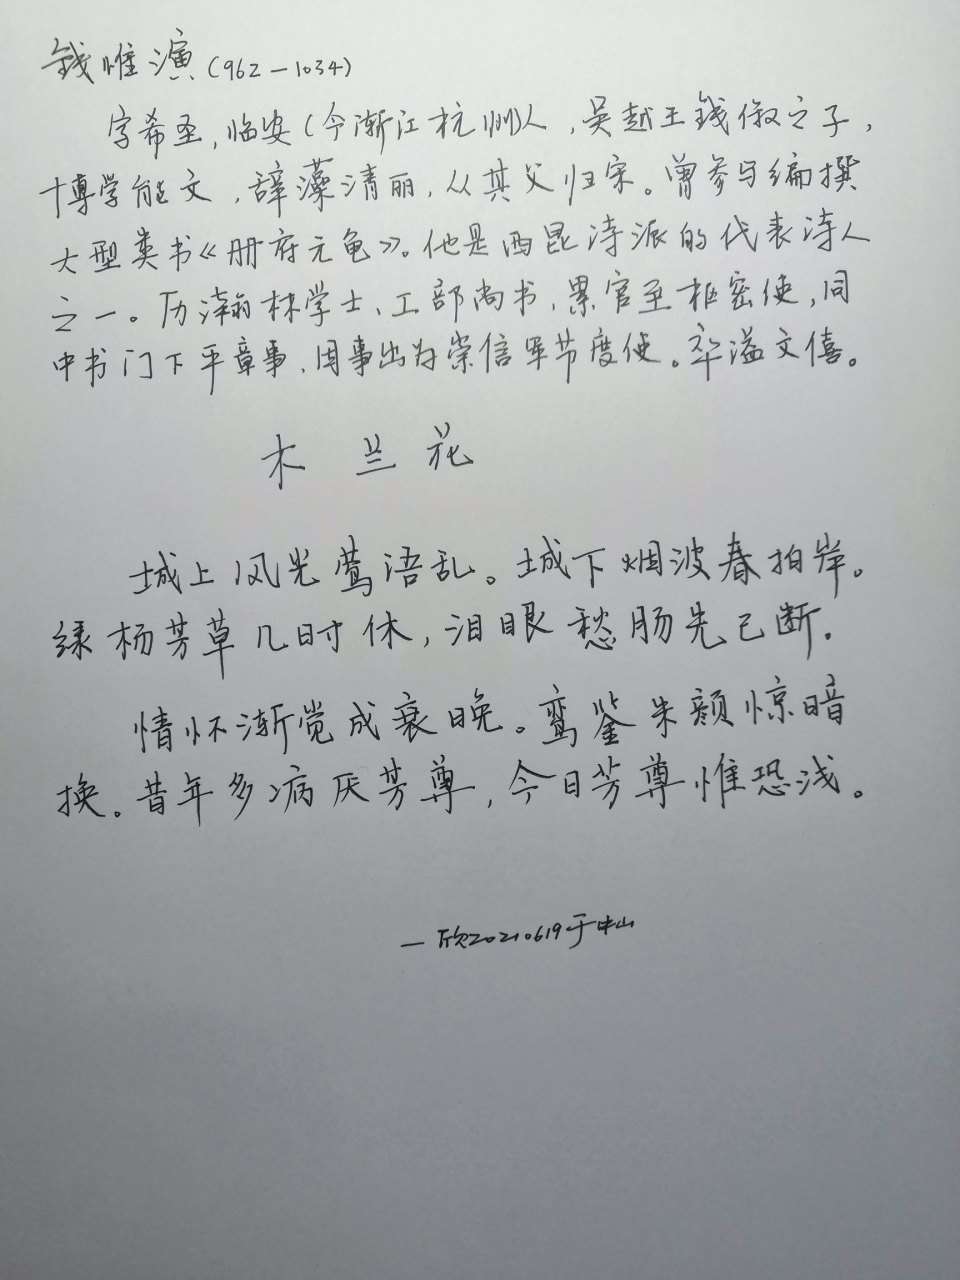 钱惟演(962-1034)
字希圣,临安(今浙江杭州)人,吴越王钱俶之子,
博学能文,辞藻清丽,从其父归宋。曾参与编撰
大型类书《册府元龟》。他是西昆诗派的代表诗人
之一。历瀚林学士、工部尚书,累官至枢密使,同
中书门下平章事,因事出为崇信军节度使。卒溢文僖。
木兰花
城上风光莺语乱。城下烟波春拍岸。
绿杨芳草几时休,泪眼愁肠先已断。
情怀渐觉成衰晚。鸾鉴朱颜惊暗
换。昔年多病厌芳尊,今日芳尊惟恐浅。
一欣20210619于中山